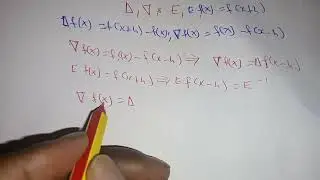 Δ, ∇ & E, E f(x) = f(x+h)
Δf(x) = f(x+h) - f(x) ⇒ ∇ f(x) = f(x) - f(x-h)
∇ f(x) = f(x) - f(x-h) ⇒ ∇ f(x) = f(x) - f(x-h)
E f(x) = f(x+h) ⇒ E f(x-h) = E⁻¹
∇ f(x) = Δ